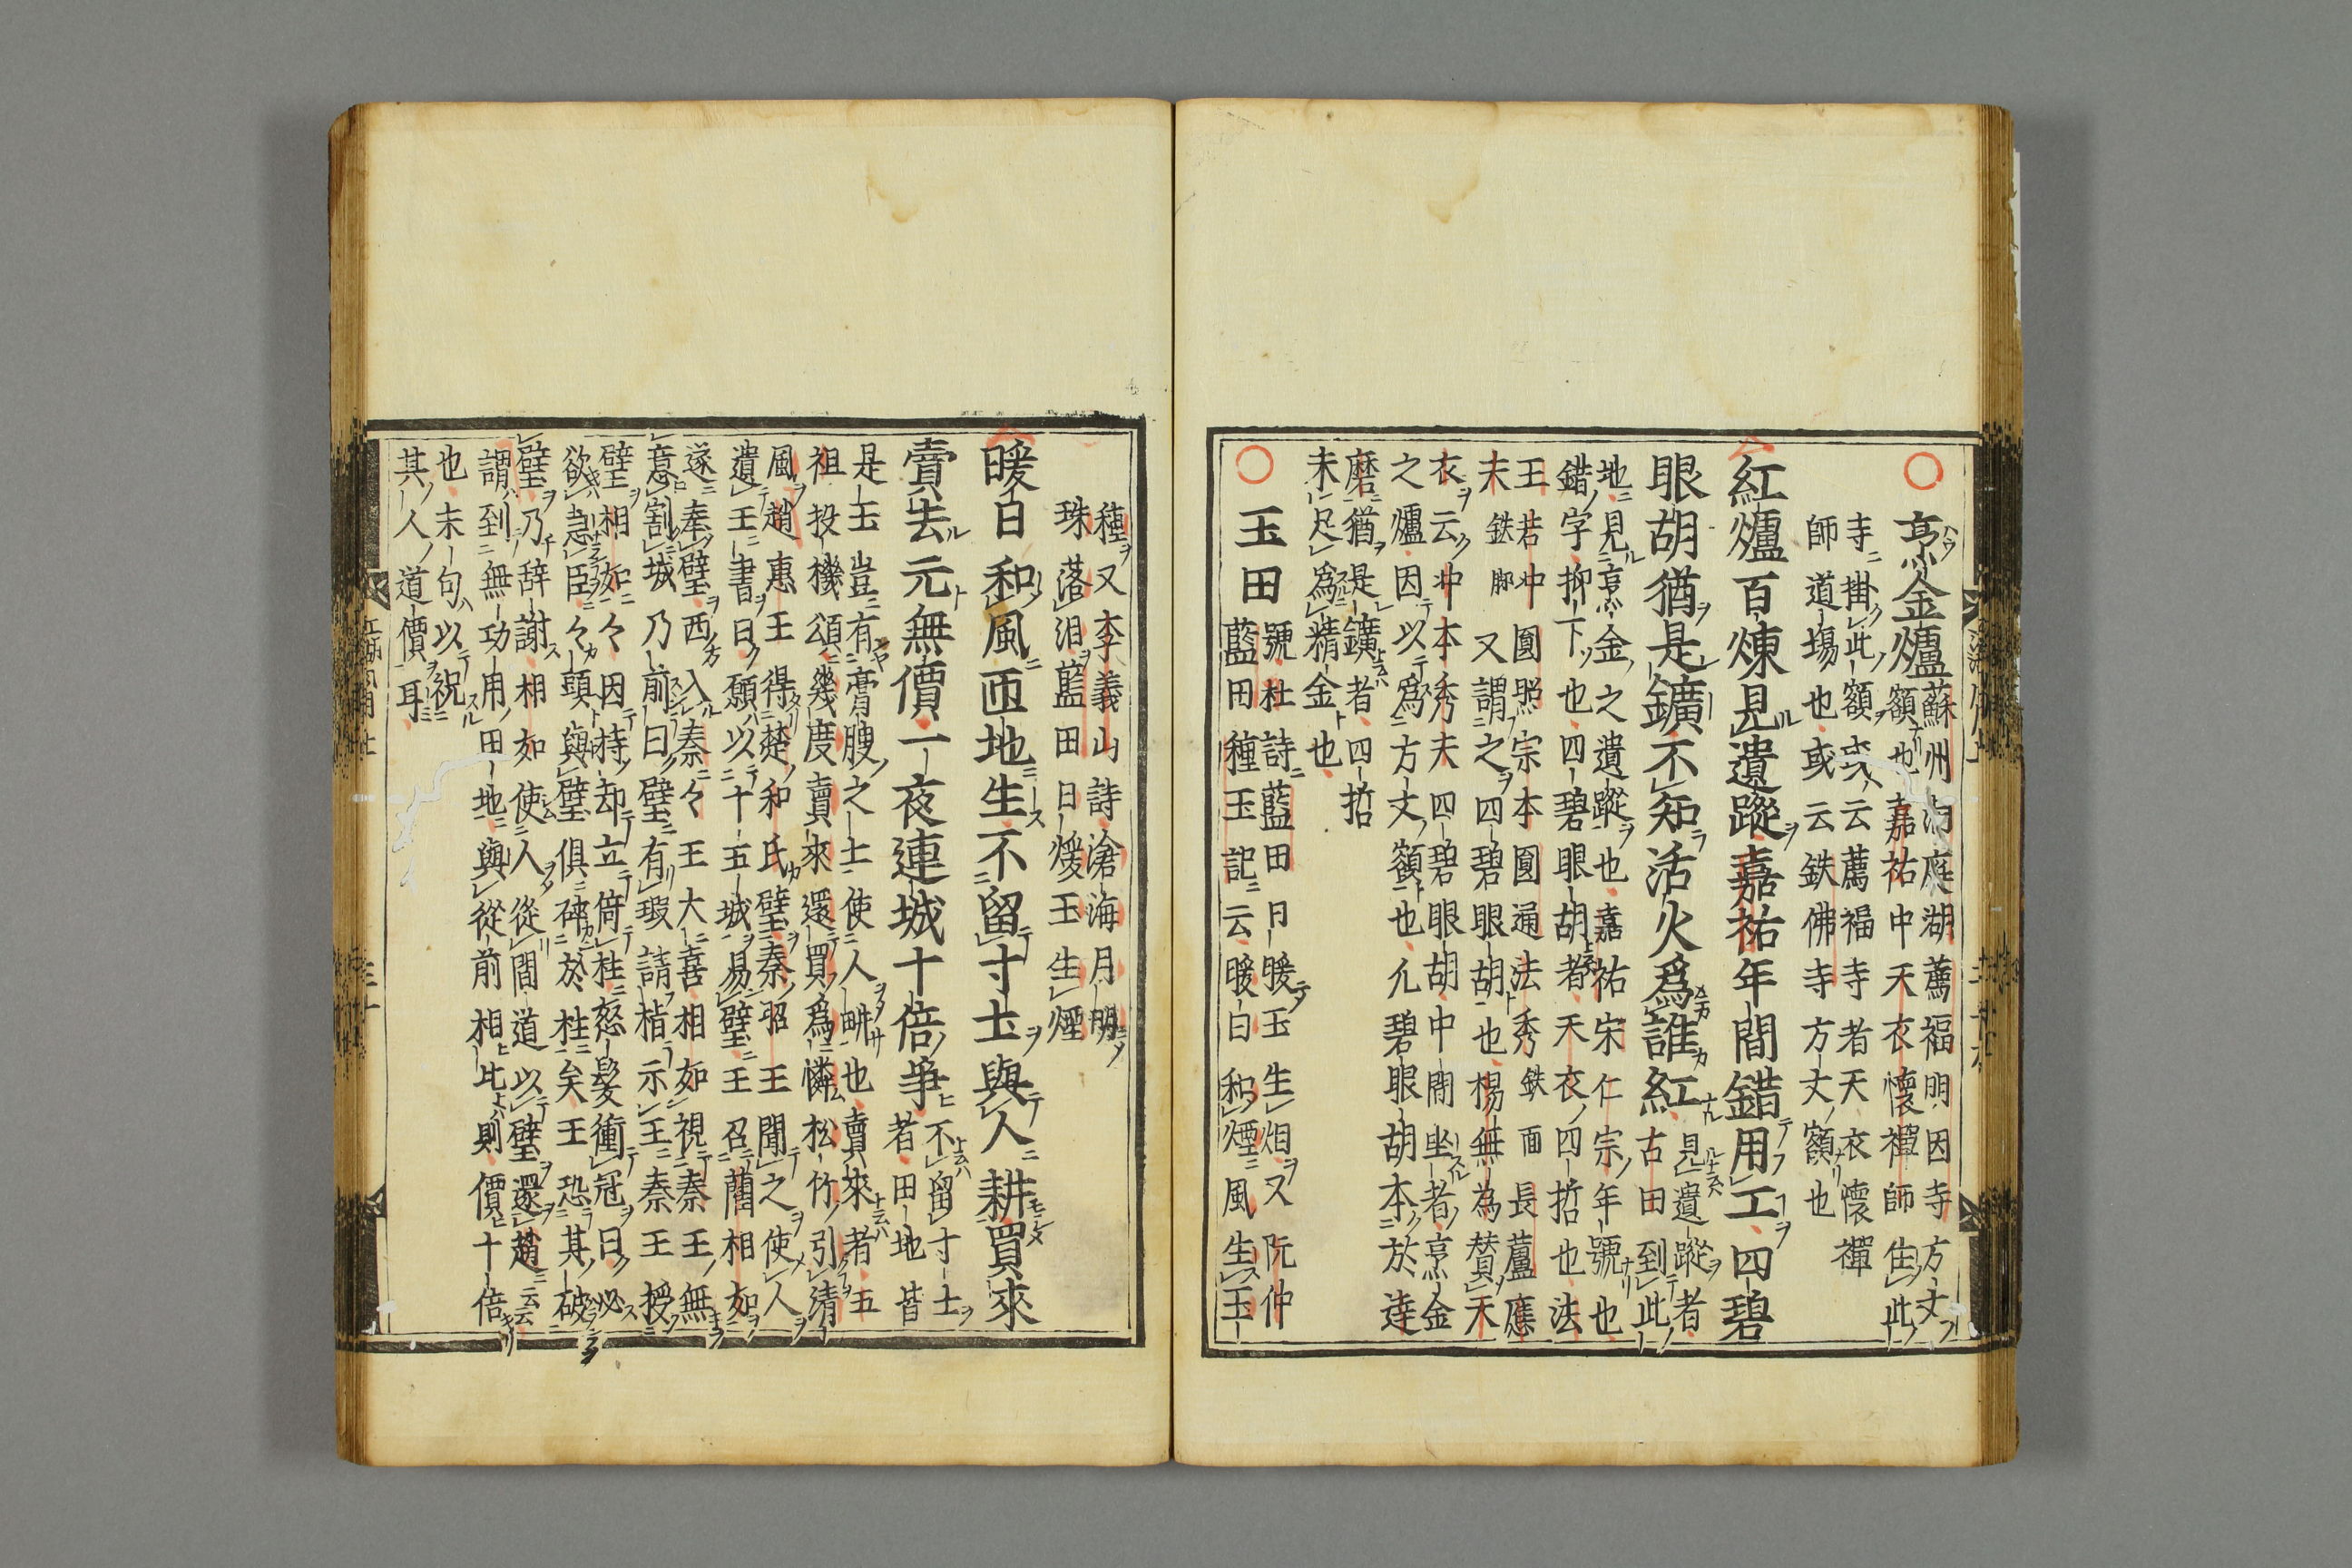 烹金爐蘇州洞庭湖薦福明因寺方丈
額也嘉祐中天衣懷禪師住此
寺掛此額或云薦福寺者天衣懷禪
師道場也或云鉄佛寺方丈額也
紅爐百煉見遺蹤嘉祐年間錯用工四碧
眼胡猶是鑛不知活火為誰紅見遺蹤者
古田到此
地見烹金之遺蹤也嘉祐宋仁宗年號也
錯字抑下也四碧眼胡者天衣四哲也法
王若冲圓照宗本圓通法秀鉄面長蘆應
夫鉄脚又謂之四碧眼胡也楊無為賛天
衣云冲本秀夫四碧眼胡中間坐者烹金
之爐因以為方丈額也允碧眼胡本於達
磨猶是鑛者四哲
未尺為精金也
玉田號杜詩藍田日暖玉生烟又阮仲
藍田種玉記云暖日和煙風生玉
種又李義山詩滄海月明
珠落泪藍田日煖玉生煙
暖日和風匝地生不留寸土與人耕買來
賣去元無價一夜連城十倍爭不留寸土
者田地皆
是玉豈有膏腴之土使人畊也賣來者五
祖投機頌幾度賣來還買為憐松竹引清
風趙惠王得楚和氏璧秦昭王聞之使人
遺王書曰願以十五城易璧王召藺相如
遂奉璧西入秦々王大喜相如視秦王無
意割城乃前曰璧有瑕請指示王秦王授
璧相如々因持却立倚柱怒髮衝冠曰必
欲急臣々頭與璧俱碎於柱矣王恐其破
璧乃辞謝相如使人從間道以璧還趙云云
謂到無功用田地與從前相比則價十倍
也末句以祝
其人道價耳